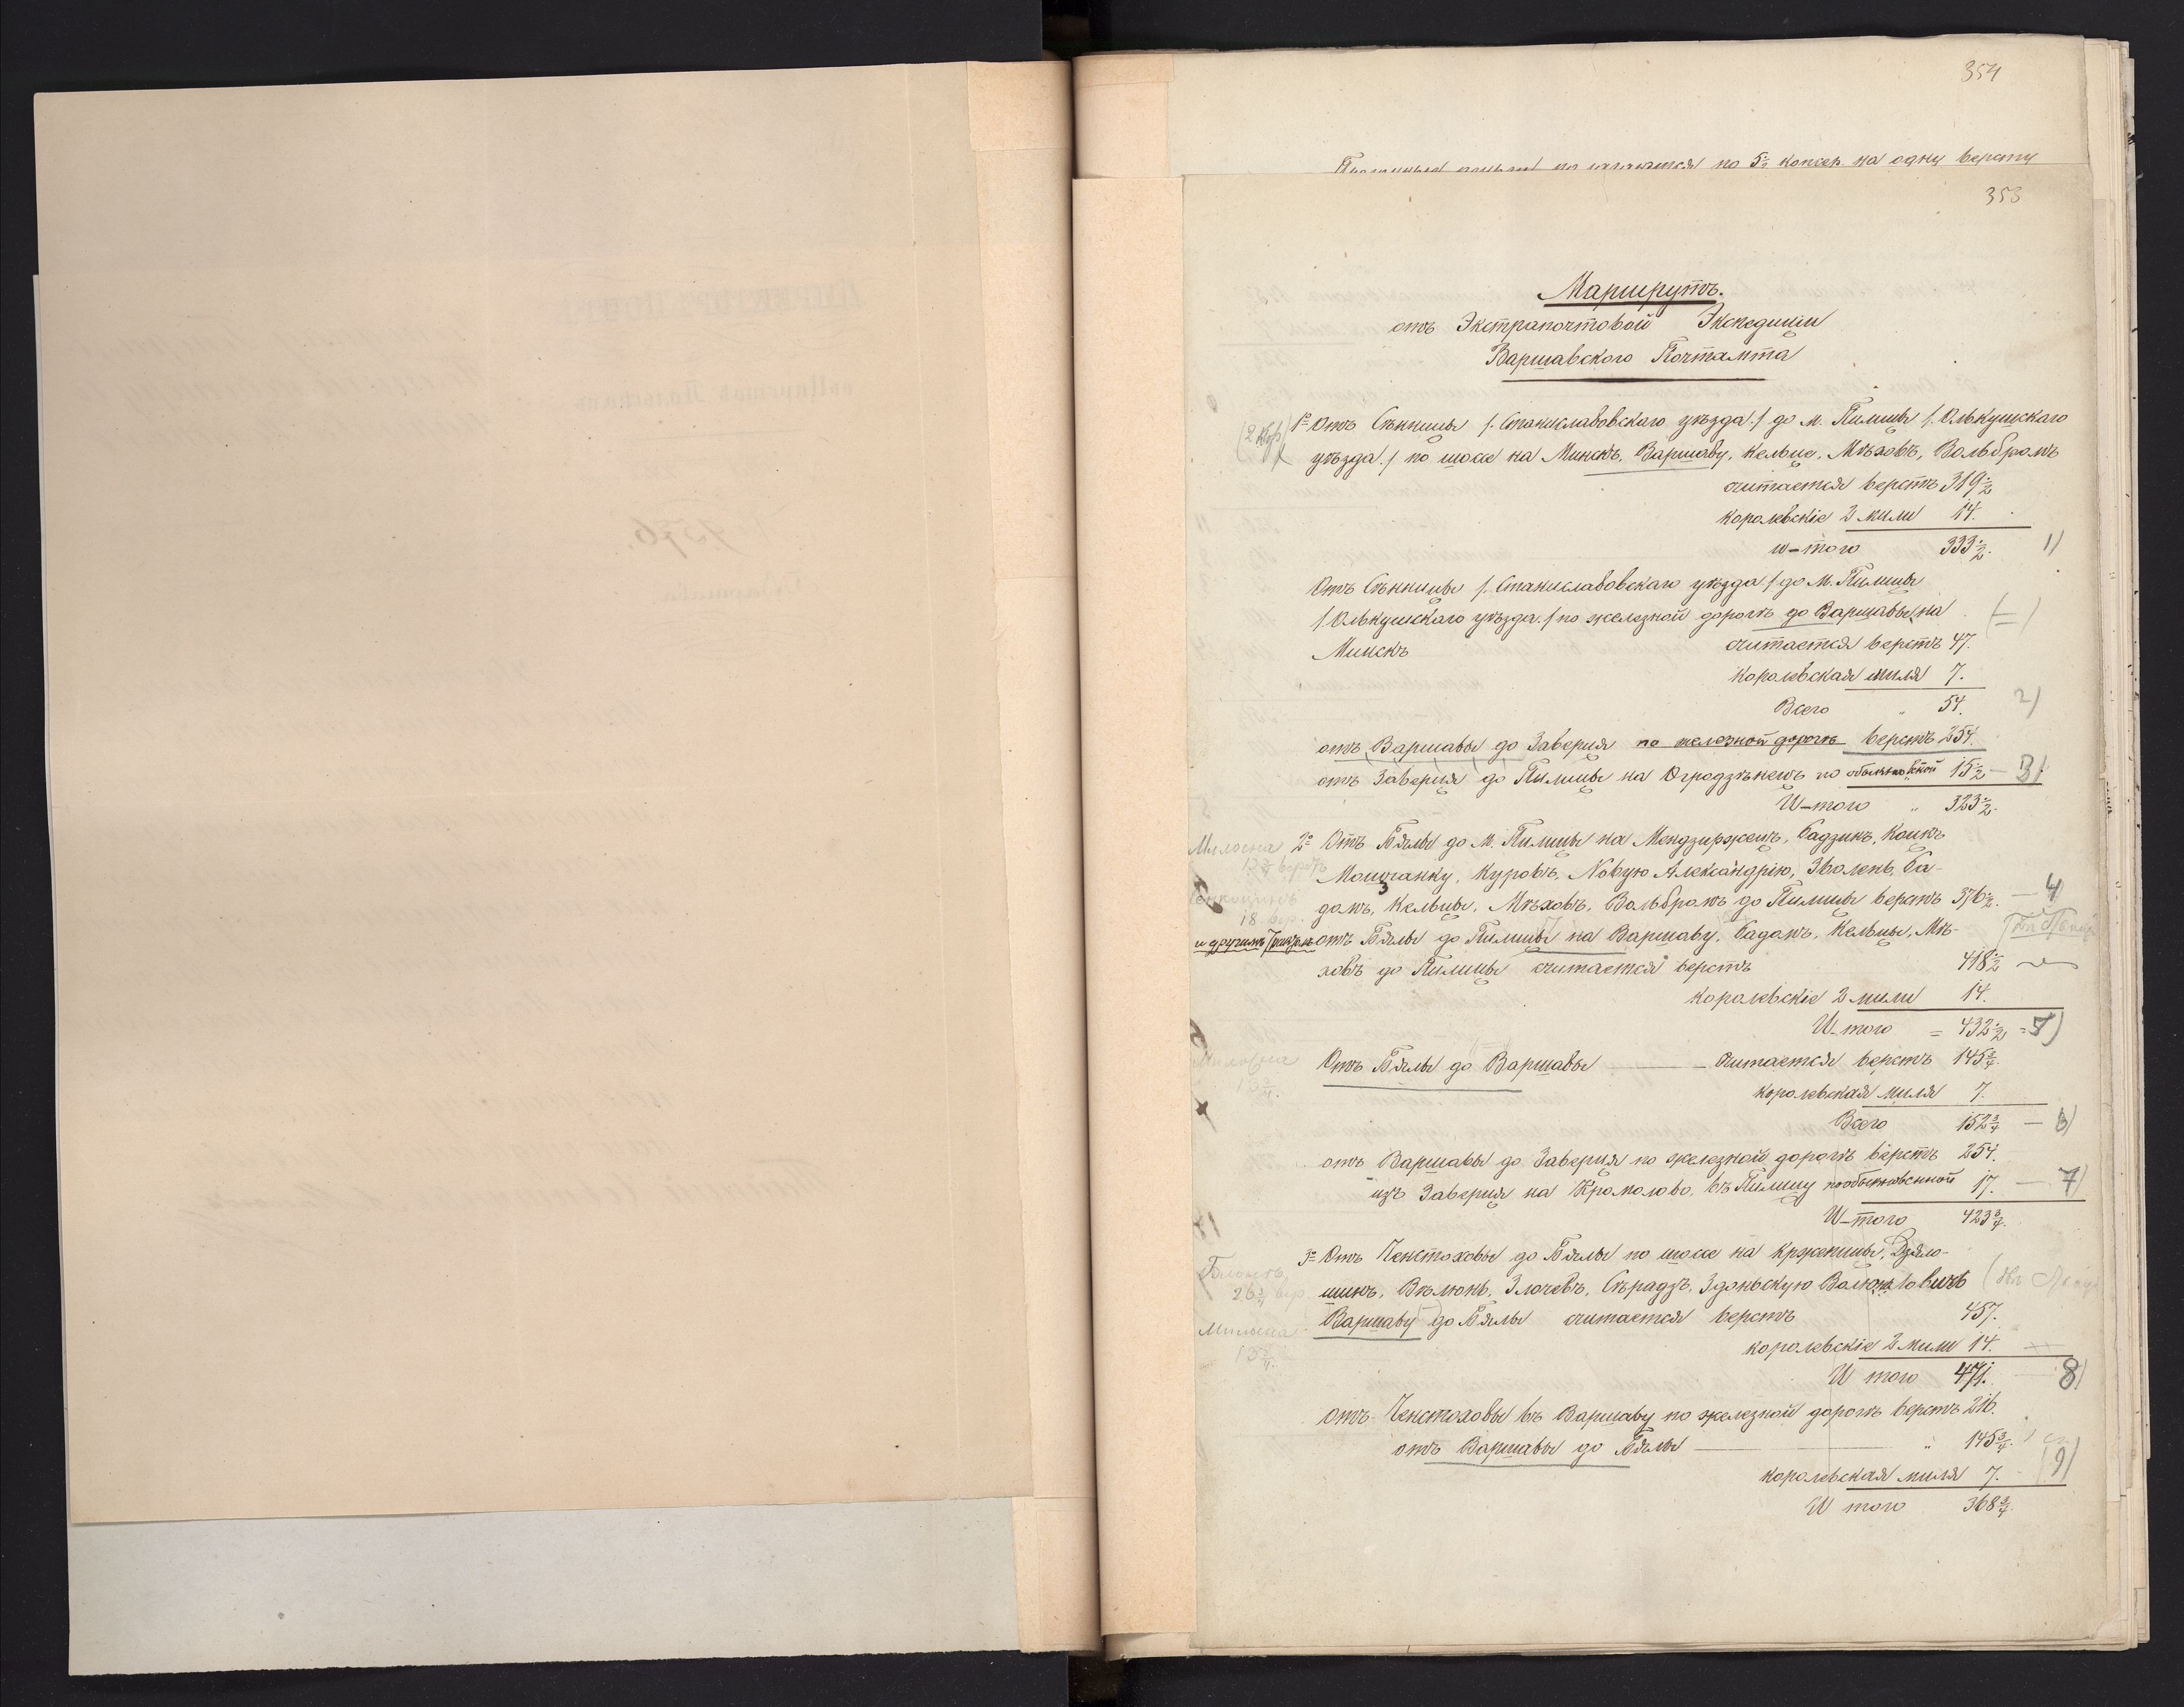 354
по 5½ копеек на одну версту
353
Маршрутъ.
отъ Экстрапочтовой Экспедиціи
Варшавскаго Почтамта
1º Отъ Сѣнницы /. Станиславовскаго уѣзда ./ до М. Пилицы /. Олькушскаго
уѣзда ./ по шоссе на Минскъ, Варшаву, Кельце, Мѣховъ, Вольбромъ
считается верстъ 319½
Королевскіе 2 мили 14.
и-того 333½. 1)
Отъ Сѣнницы /. Станиславовскаго уѣзда ./ до М. Пилицы
/. Олькушскаго уѣзда ./ по железной дорогѣ до Варшавы на
Минскъ считается верстъ 47.
Королевская миля 7.
Всего " 54. 2)
отъ Варшавы до Заверця по железной дорогѣ верстъ 254.
отъ Заверця до Пилицы на Огродзѣнецъ по обыкновенной 15½ — 3)
И-того " 323½.
Милосна 2º Отъ Бялы до М. Пилицы на Мендзиржецъ, Радзинь, Коцкъ
13¾ верстъ Мошчанку, Куровъ, Новую Александрію, Зволень, Ра-
домъ, Кельцы, Мѣховъ, Вольбромъ до Пилицы верстъ 376½. — 4
18 вер.
и другимъ трактомъ отъ Бялы до Пилицы на Варшаву, Радомъ, Кельцы, Мѣ-
ховъ до Пилицы считается верстъ 418½
Королевскіе 2 мили 14.
И-того = 432½ = 5)
Милосна Отъ Бялы до Варшавы — считается верстъ 145¾
13¾.
Королевская миля 7.
Всего 152¾ — 6)
отъ Варшавы до Заверця по железной дорогѣ верстъ 254.
изъ Заверця на Кромолово, въ Пилицу по обыкновенной 17. — 7)
И-того 423¾.
3º Отъ Ченстоховы до Бялы по шоссе на Кржепицы, Дзяло-
Блоне
26¾ вер. шинъ, Вѣлюнь, Злочевъ, Сѣрадзь, Здоньскую Волю на Ловичъ
Варшаву до Бялы считается верстъ 457.
Милосна
13¾.
королевскіе 2 мили 14.
И того 471. — 8)
отъ Ченстоховы въ Варшаву по железной дорогѣ верстъ 216.
отъ Варшавы до Бялы — " 145¾.
королевская миля 7. 9)
И того 368¾.